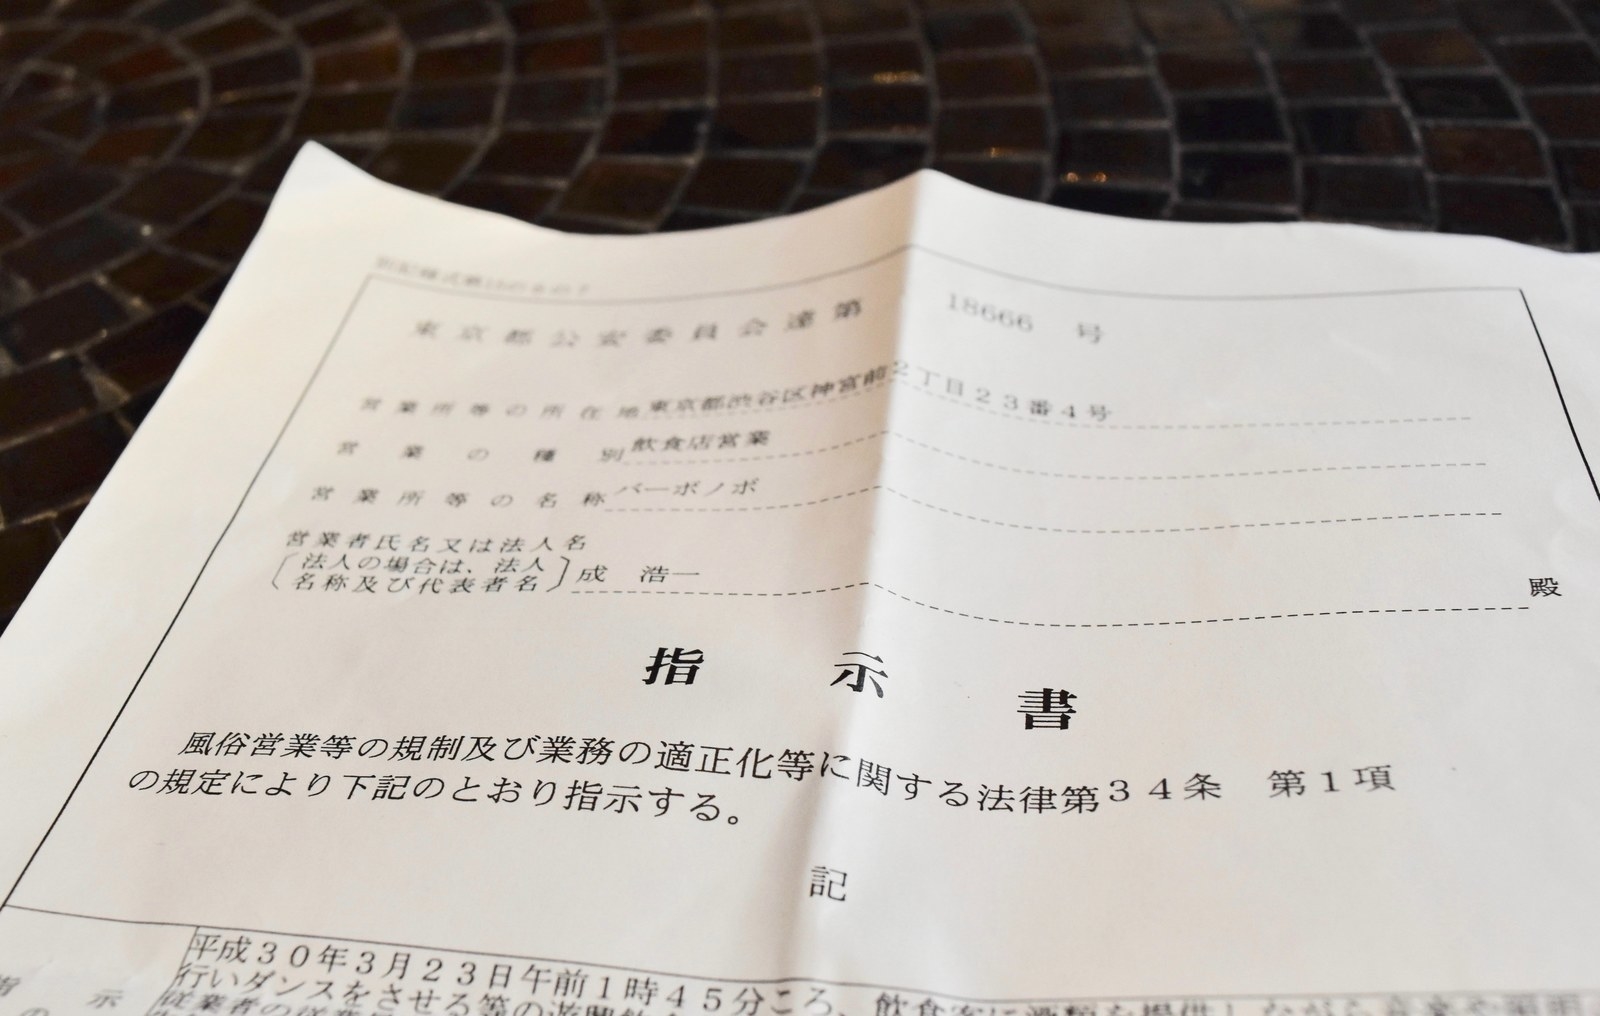 東京都公安委員会達第 18666 号
営業所等の所在地 東京都渋谷区神宮前2丁目23番4号
営業の種別 飲食店営業
営業所等の名称 バーボノボ
営業者氏名又は法人名
法人の場合は、法人
名称及び代表者名 成 浩一 殿
指示書
風俗営業等の規制及び業務の適正化等に関する法律第34条 第1項
の規定により下記のとおり指示する。
記
平成30年3月23日午前1時45分ころ、飲食客に酒類を提供しながら
行いダンスをさせる等の遊興
指示